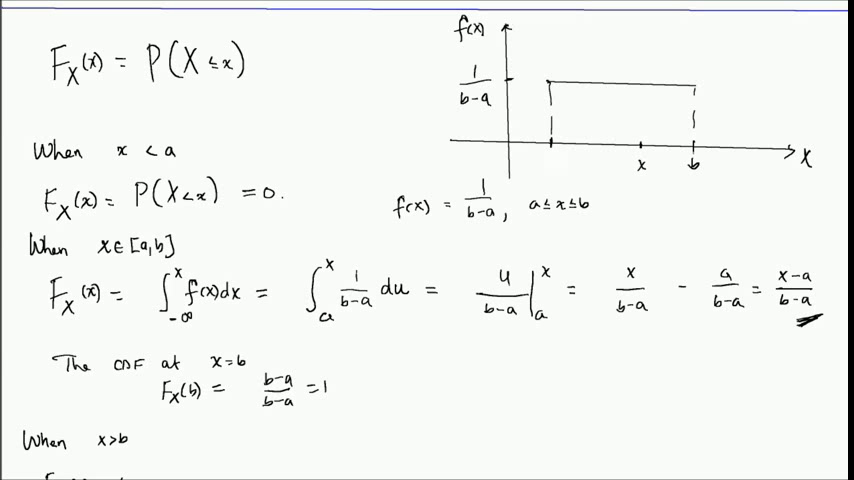 F_X(x) = P(X ≤ x)
f(x)
1/(b-a)
x b X
When x < a
F_X(x) = P(X < x) = 0.
f(x) = 1/(b-a), a ≤ x ≤ b
When x ∈ [a,b]
F_X(x) = ∫_{-∞}^{x} f(x)dx = ∫_a^x 1/(b-a) du = u/(b-a) |_a^x = x/(b-a) - a/(b-a) = (x-a)/(b-a)
The CDF at x=b
F_X(b) = (b-a)/(b-a) = 1
When x>b